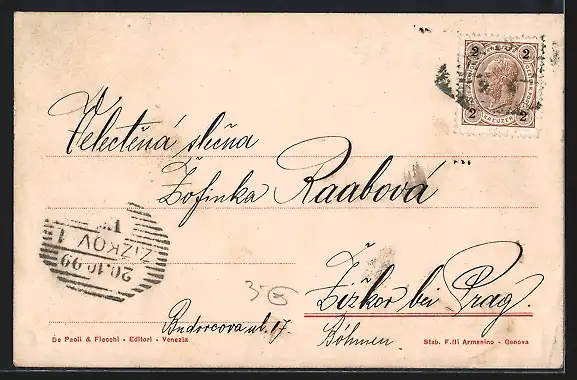 2 2
2 KREUZER 2
Velectěná slečna
Žofinka Raabová
ŽIŽKOV 1
20.10.99
Žižkov bei Prag.
ul. 17.
Böhmen
De Paoli & Fiecchi - Editori - Venezia
Stab. F.lli Armanino - Genova